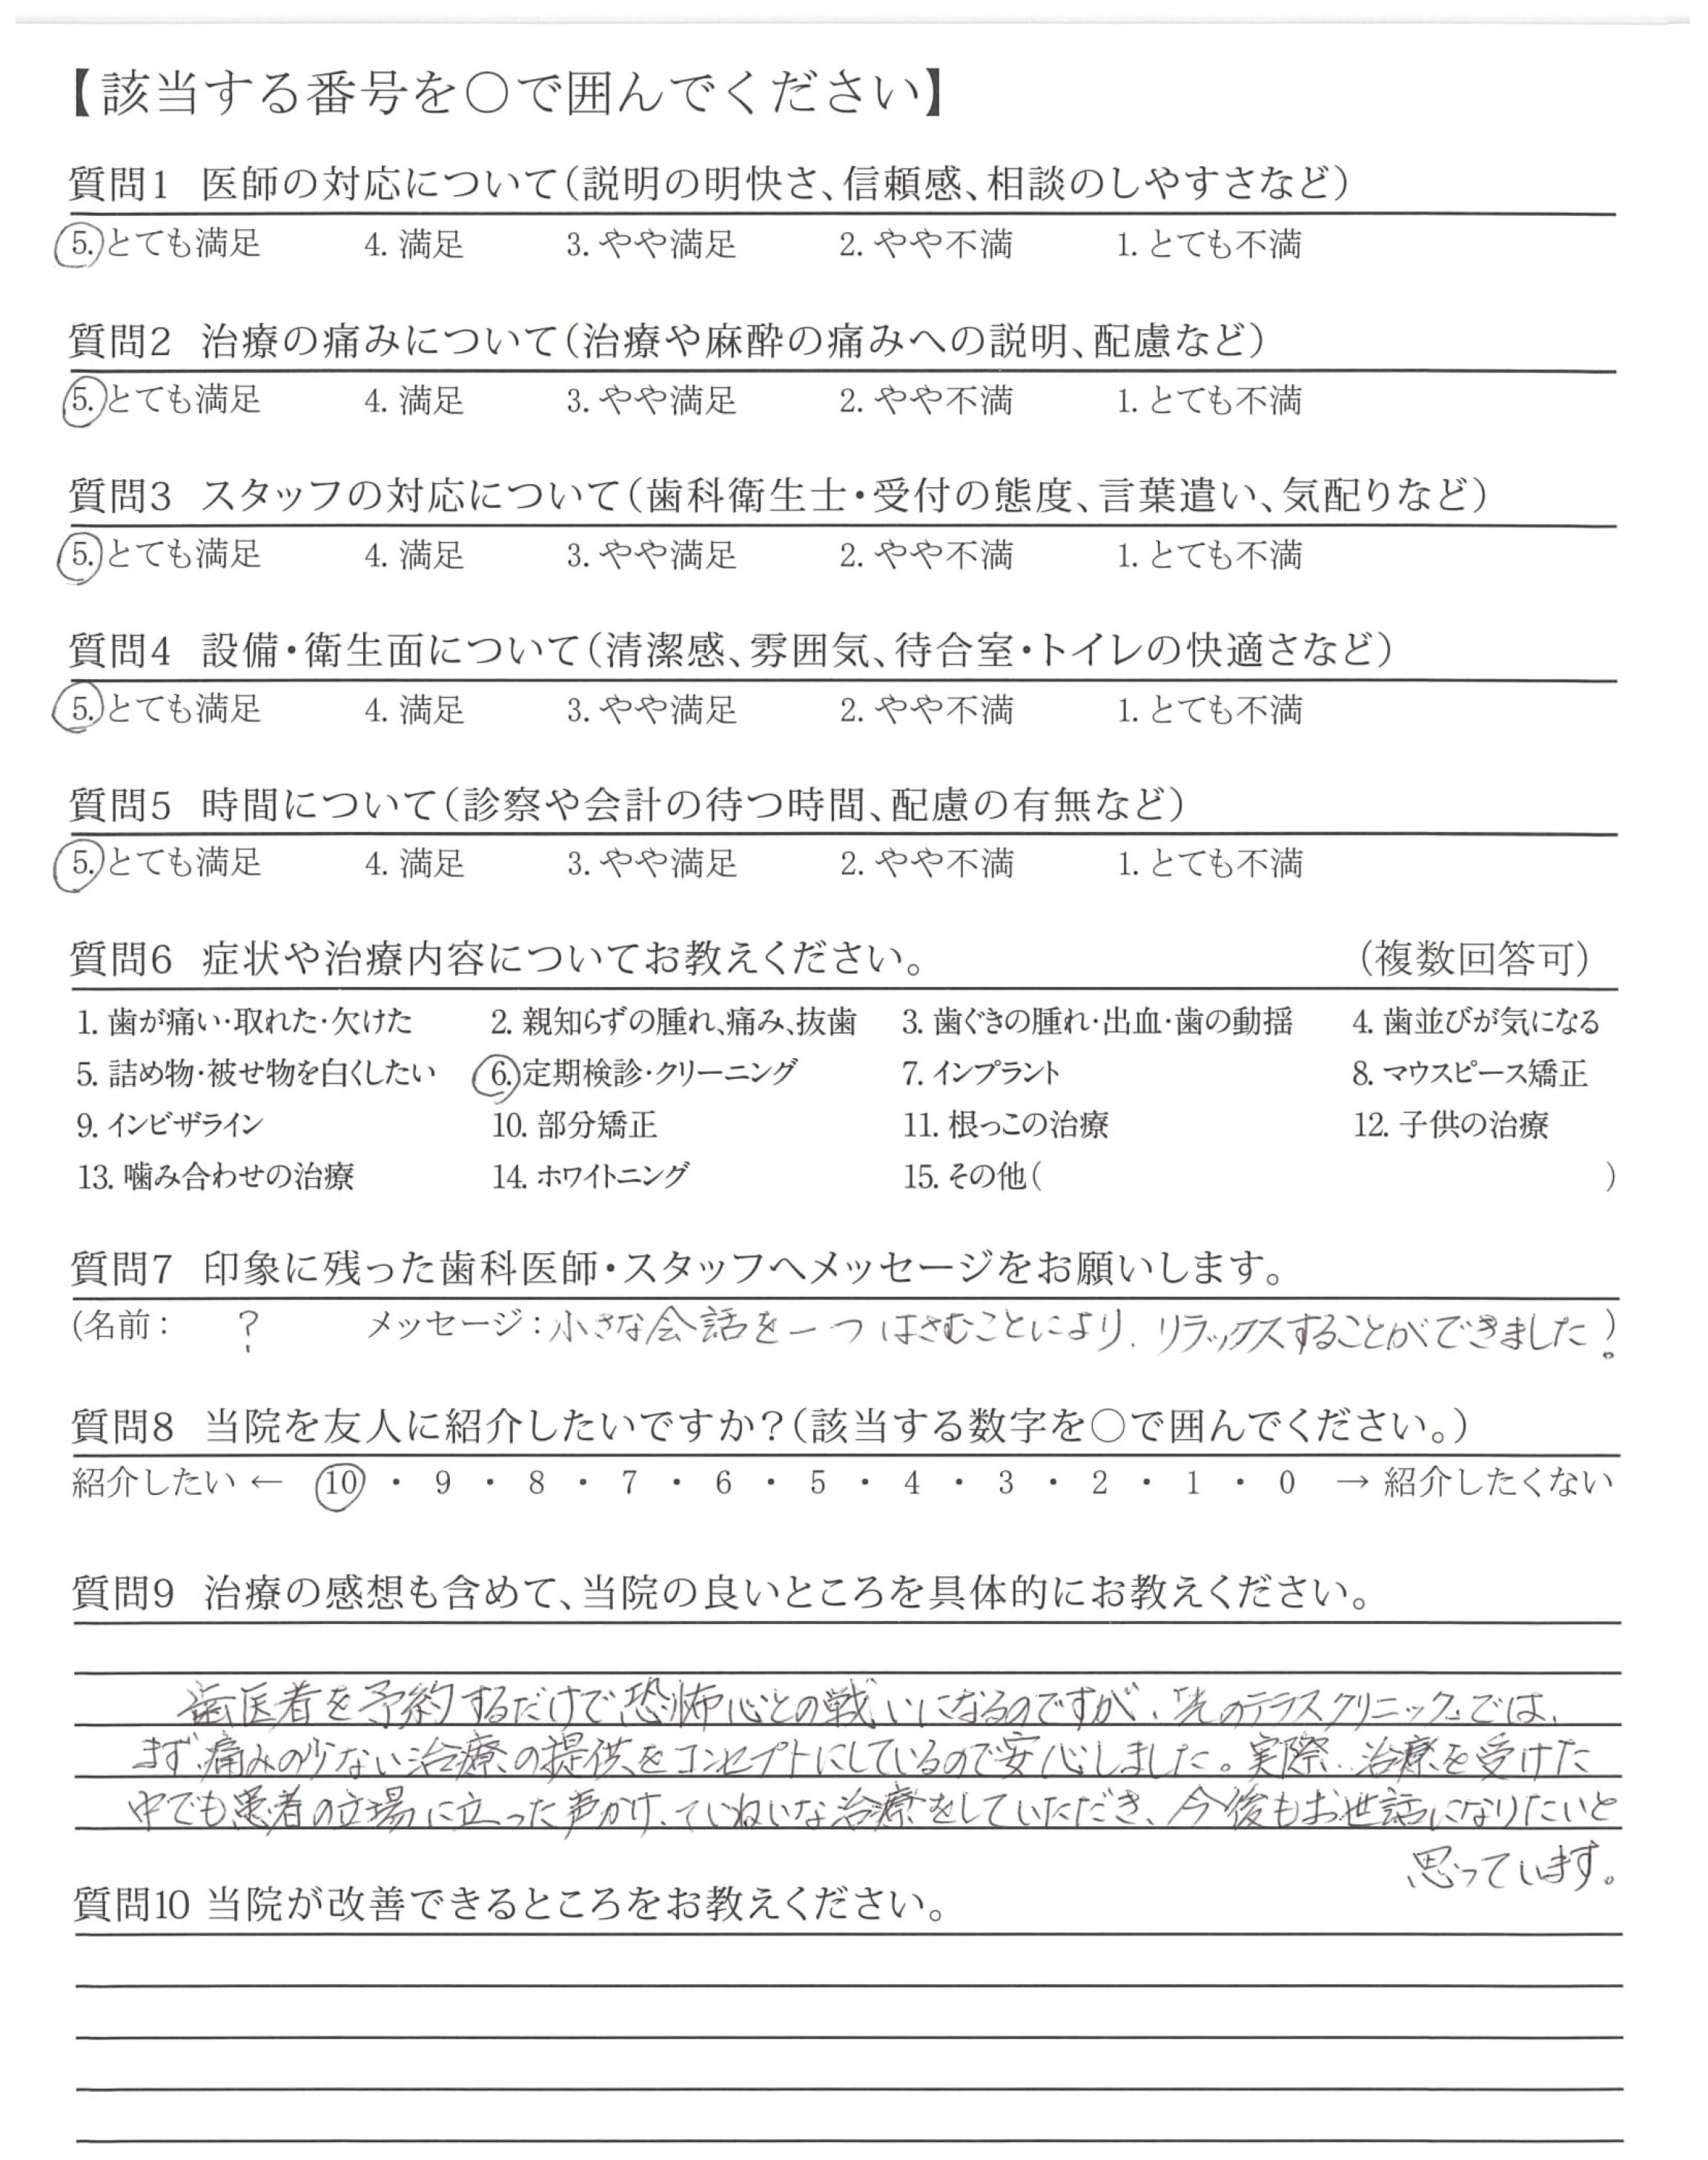 【該当する番号を○で囲んでください】
質問1 医師の対応について(説明の明快さ、信頼感、相談のしやすさなど)
5. とても満足 4. 満足 3. やや満足 2. やや不満 1. とても不満
質問2 治療の痛みについて(治療や麻酔の痛みへの説明、配慮など)
5. とても満足 4. 満足 3. やや満足 2. やや不満 1. とても不満
質問3 スタッフの対応について(歯科衛生士・受付の態度、言葉遣い、気配りなど)
5. とても満足 4. 満足 3. やや満足 2. やや不満 1. とても不満
質問4 設備・衛生面について(清潔感、雰囲気、待合室・トイレの快適さなど)
5. とても満足 4. 満足 3. やや満足 2. やや不満 1. とても不満
質問5 時間について(診察や会計の待つ時間、配慮の有無など)
5. とても満足 4. 満足 3. やや満足 2. やや不満 1. とても不満
質問6 症状や治療内容についてお教えください。 (複数回答可)
1. 歯が痛い・取れた・欠けた 2. 親知らずの腫れ、痛み、抜歯 3. 歯ぐきの腫れ・出血・歯の動揺 4. 歯並びが気になる
5. 詰め物・被せ物を白くしたい 6. 定期検診・クリーニング 7. インプラント 8. マウスピース矯正
9. インビザライン 10. 部分矯正 11. 根っこの治療 12. 子供の治療
13. 噛み合わせの治療 14. ホワイトニング 15. その他( )
質問7 印象に残った歯科医師・スタッフへメッセージをお願いします。
(名前: ? メッセージ:小さな会話を一つはさむことにより、リラックスすることができました。)
質問8 当院を友人に紹介したいですか?(該当する数字を○で囲んでください。)
紹介したい ← 10 ・ 9 ・ 8 ・ 7 ・ 6 ・ 5 ・ 4 ・ 3 ・ 2 ・ 1 ・ 0 → 紹介したくない
質問9 治療の感想も含めて、当院の良いところを具体的にお教えください。
歯医者を予約するだけで恐怖心との戦いになるのですが、「光のテラスクリニック」では、
まず、痛みの少ない治療の提供をコンセプトにしているので安心しました。実際、治療を受けた
中でも患者の立場に立った声かけ、ていねいな治療をしていただき、今後もお世話になりたいと
思っています。
質問10 当院が改善できるところをお教えください。